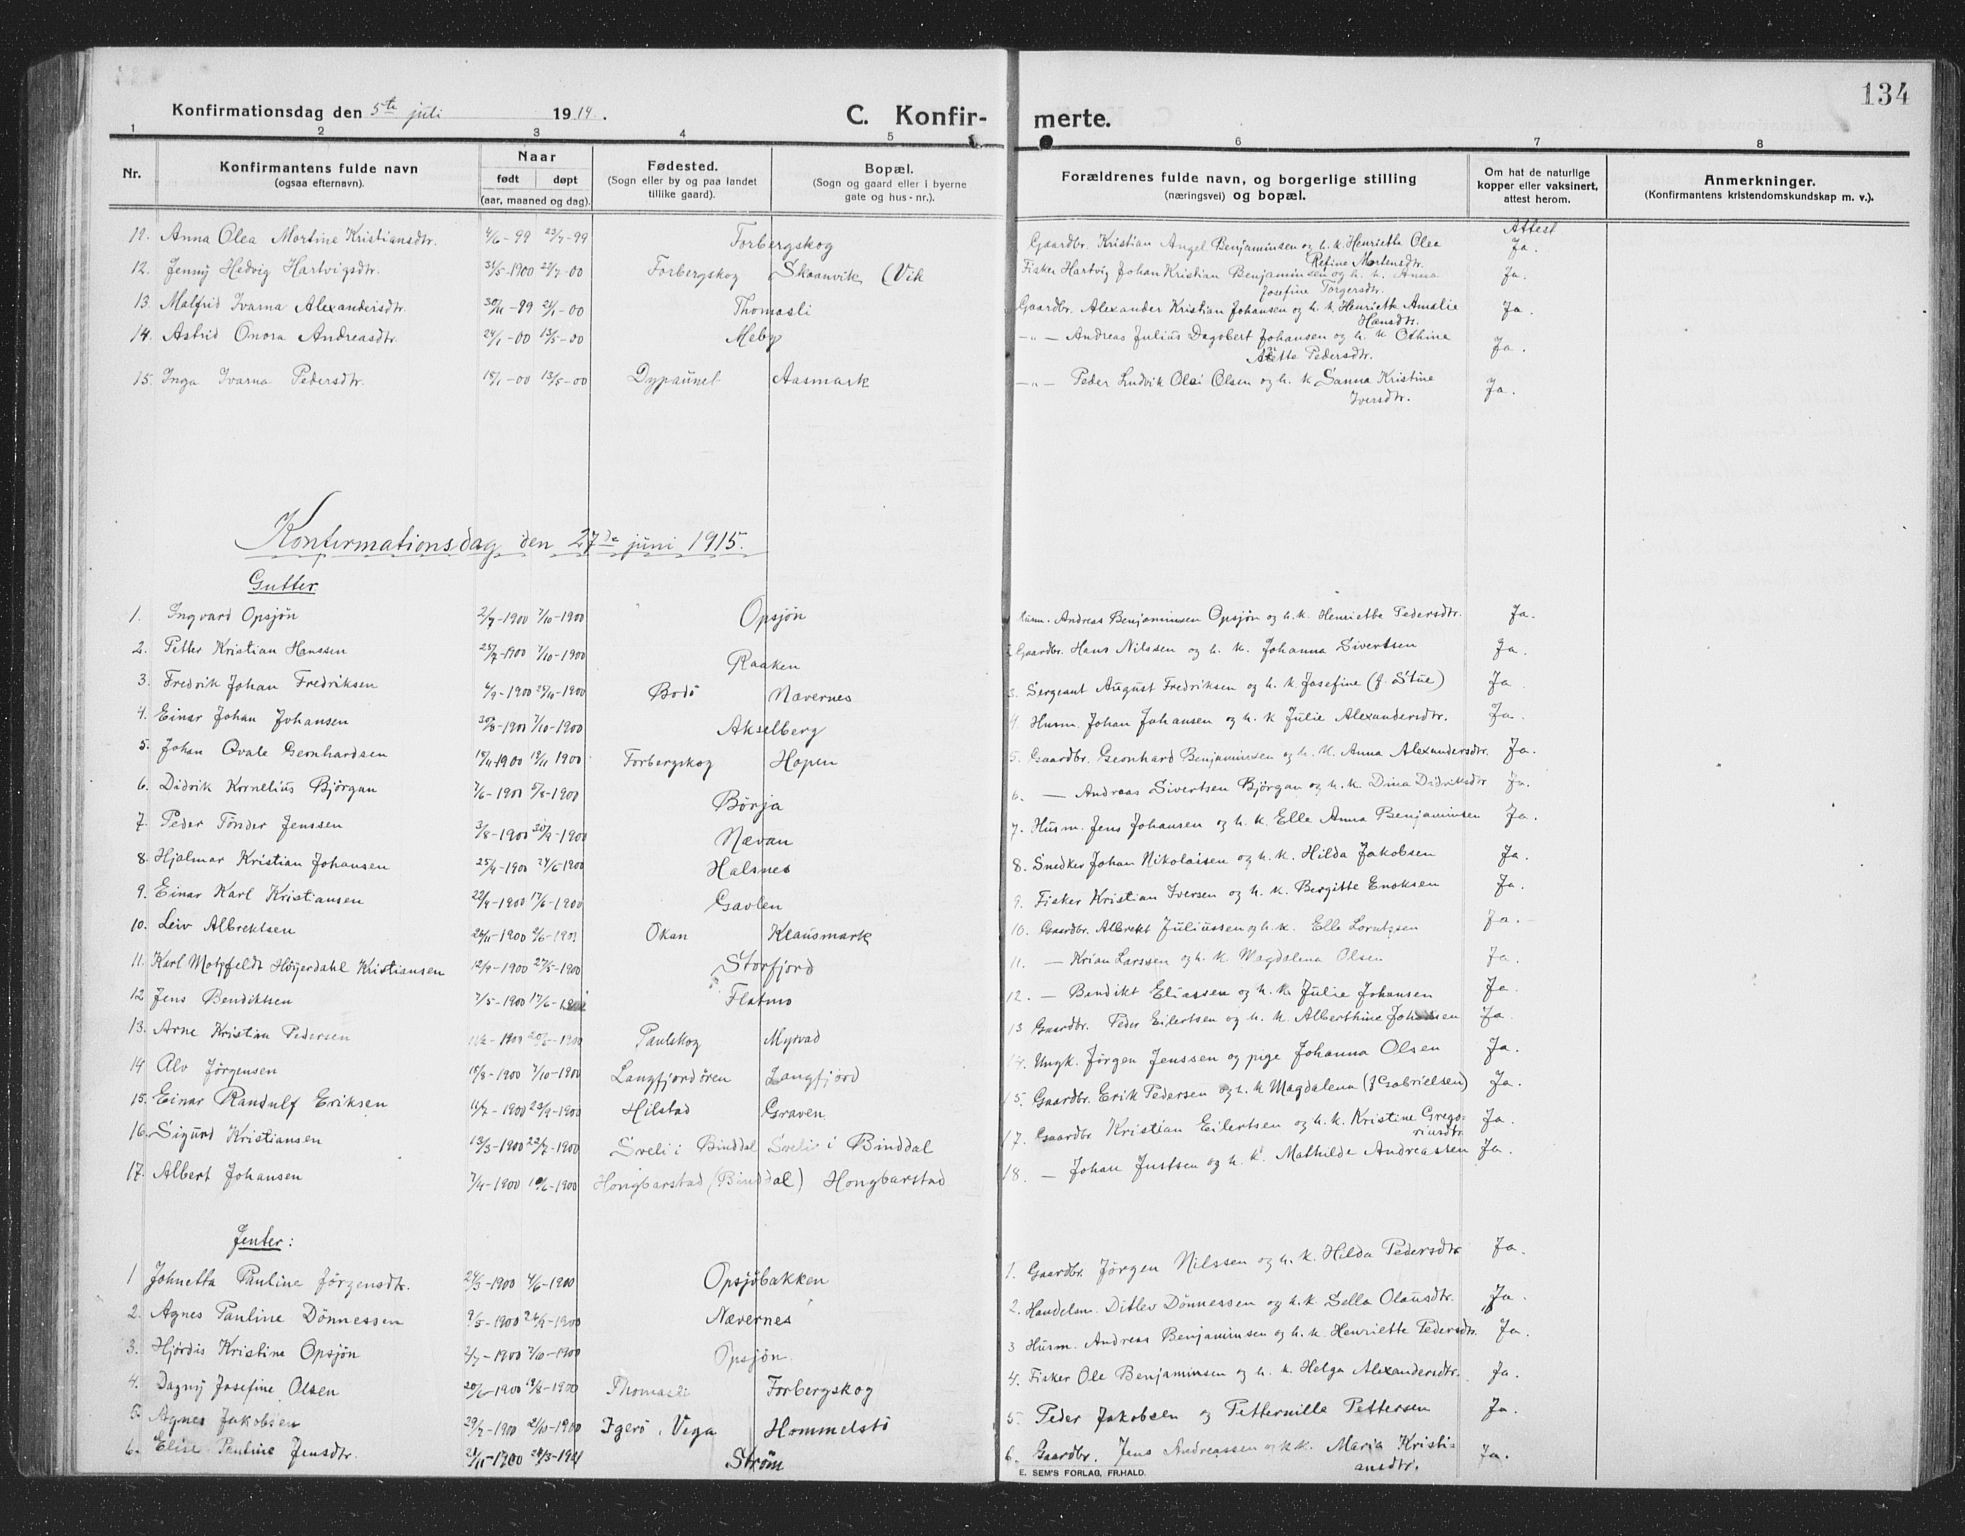 134
Konfirmationsdag den 5te juli 1914. C. Konfir- merte.
1 2 3 4 5 6 7 8
Nr. Konfirmantens fulde navn (ogsaa efternavn). Naar født døpt (aar, maaned og dag). Fødested. (Sogn eller by og paa landet tillike gaard). Bopæl. (Sogn og gaard eller i byerne gate og hus-nr.). Forældrenes fulde navn, og borgerlige stilling (næringsvei) og bopæl. Om hat de naturlige kopper eller vaksinert, attest herom. Anmerkninger. (Konfirmantens kristendomskundskap m. v.).
Attest
11. Anna Olea Mortine Kristiansdtr. 4/6-99 23/7-99 Forbergskog Gaardbr. Kristian Angel Benjaminsen og h. k. Henriette Olea Refine Mortensdtr. Ja.
12. Jenny Hedvig Hartvigsdtr. 31/5-1900 22/7-00 Forbergskog Skaanvik (Vik Fisker Hartvig Johan Kristian Benjaminsen og h. k. Anna Josefine Torgersdtr. Ja.
13. Malfrid Ivarna Alexandersdtr. 30/11-99 21/1-00 Thomasli Gaardbr. Alexander Kristian Johansen og h. k. Henriette Amalie Hansdtr. Ja.
14. Astrid Onora Andreasdtr. 24/1-00 13/5-00 Meby -"- Andreas Julius Dagobert Johansen og h. k Othine Pedersdtr. Ja.
15. Inga Ivarna Pedersdtr. 18/1-00 13/5-00 Dypaunet Aasmark -"- Peder Ludvik Olai Olsen og h. k Sanna Kristine Iversdtr. Ja.
Konfirmationsdag den 27de juni 1915.
Gutter.
1. Ingvard Opsjøn 2/7-1900 7/10-1900 Opsjön Husm. Andreas Benjaminsen Opsjøn og h. k. Henriette Pedersdtr. Ja.
2. Petter Kristian Hanssen 25/7-1900 7/10-1900 Raaken Gaardbr. Hans Nilssen og h. k. Johanna Sivertsen Ja.
3. Fredrik Johan Fredriksen 4/9-1900 25/11-1900 Bodö Nævernes 3. Sergeant August Fredriksen og h. k Josefine (f. Stue) Ja
4. Einar Johan Johansen 7/10-1900 Akselberg 4. Husm. Johan Johansen og h. k Julie Alexandersdtr. Ja.
5. Johan Qvale Geonhardsen 1900 Forbergskog Hopen 5. Gaardbr. Geonhard Benjaminsen og h. k. Anna Alexandersdtr. Ja.
6. Didrik Kornelius Björgan 7/6-1900 5/8-1900 Börja 6. — Andreas Sivertsen Bjørgan og h. k. Dina Didriksdtr Ja.
7. Peder Tönder Jenssen 3/8-1900 30/9-1900 Nævan 7. Husm. Jens Johansen og h. k. Elle Anna Benjaminsen Ja.
8. Hjalmar Kristian Johansen 25/4-1900 24/6-1900 Halsnes 8. Snedker Johan Nikolaisen og h. k. Hilda Jakobsen Ja.
9. Einar Karl Kristiansen 22/4-1900 17/6-1900 Gavlen 9. Fisker Kristian Iversen og h. k. Bergitte Enoksen Ja.
10. Leiv Albrektsen Okan Klausmark 10. Gaardbr. Albrekt Juliussen og h. k. Elle Lorntzsen Ja.
11. Karl Motzfeldt Höyerdahl Kristiansen 12/4-1900 27/5-1900 Storfjord 11. — Krian Larssen og h. k Magdalena Olsen Ja.
12 Jens Bendiktsen 7/5-1900 17/6- Flatmo 12. — Bendikt Eliassen og h. k. Julie Johansen Ja.
13. Arne Kristian Pedersen 1900 Paulskog Myrvad 13 Gaardbr. Peder Eilertsen og h. k. Alberthine Johansen Ja.
14 Alv Jørgensen 15/8-1900 7/10-1900 Langfjordören Langfjord 14. Ungk. Jørgen Jenssen og pige Johanna Olsen Ja.
15. Einar Randulf Eriksen 11/7-1900 23/9-1900 Hilstad Graven 15. Gaardbr. Erik Pedersen og h. k Magdalena (f Gabrielsen) Ja.
16. Sigurd Kristiansen 13/3-1900 22/7-1900 Sveli i Binddal Sveli i Binddal 17. Gaardbr Kristian Eilertsen og h. k. Kristine Grego- riusdtr. Ja.
17. Albert Johansen 7/4-1900 10/6-1900 Hongbarstad (Binddal) Hongbarstad 18. — Johan Justsen og h. k. Mathilde Andreassen Ja.
Jenter:
1 Johnetta Pauline Jørgensdtr. 24/3-1900 4/6-1900 Opsjöbakken 1. Gaardbr. Jørgen Nilssen og h. k. Hilda Pedersdtr Ja.
2. Agnes Pauline Dönnessen 9/5-1900 24/9-1900 Nævernes 2. Handelsm. Ditlev Dönnessen og h. k. Sella Olausdtr. Ja.
3. Hjördis Kristine Opsjön 2/7-1900 7/10-1900 Opsjön. 3 Husm. Andreas Benjaminsen og h. k. Henriette Pedersdtr. Ja.
4. Dagny Josefine Olsen 20/6-1900 19/8-1900 Thomasli Forbergskog 4. Fisker Ole Benjaminsen og h. k. Helga Alexandersdtr. Ja.
5. Agnes Jakobsen 29/7-1900 21/10-1900 Igerö, Vega Hommelstö 5. Peder Jakobsen og Petternille Pettersen Ja.
6. Elise Pauline Jensdtr. Strøm 6. Gaardbr. Jens Andreassen og h. k. Maria Kristi- ansdtr. Ja.
E. SEM'S FORLAG, FR.HALD.